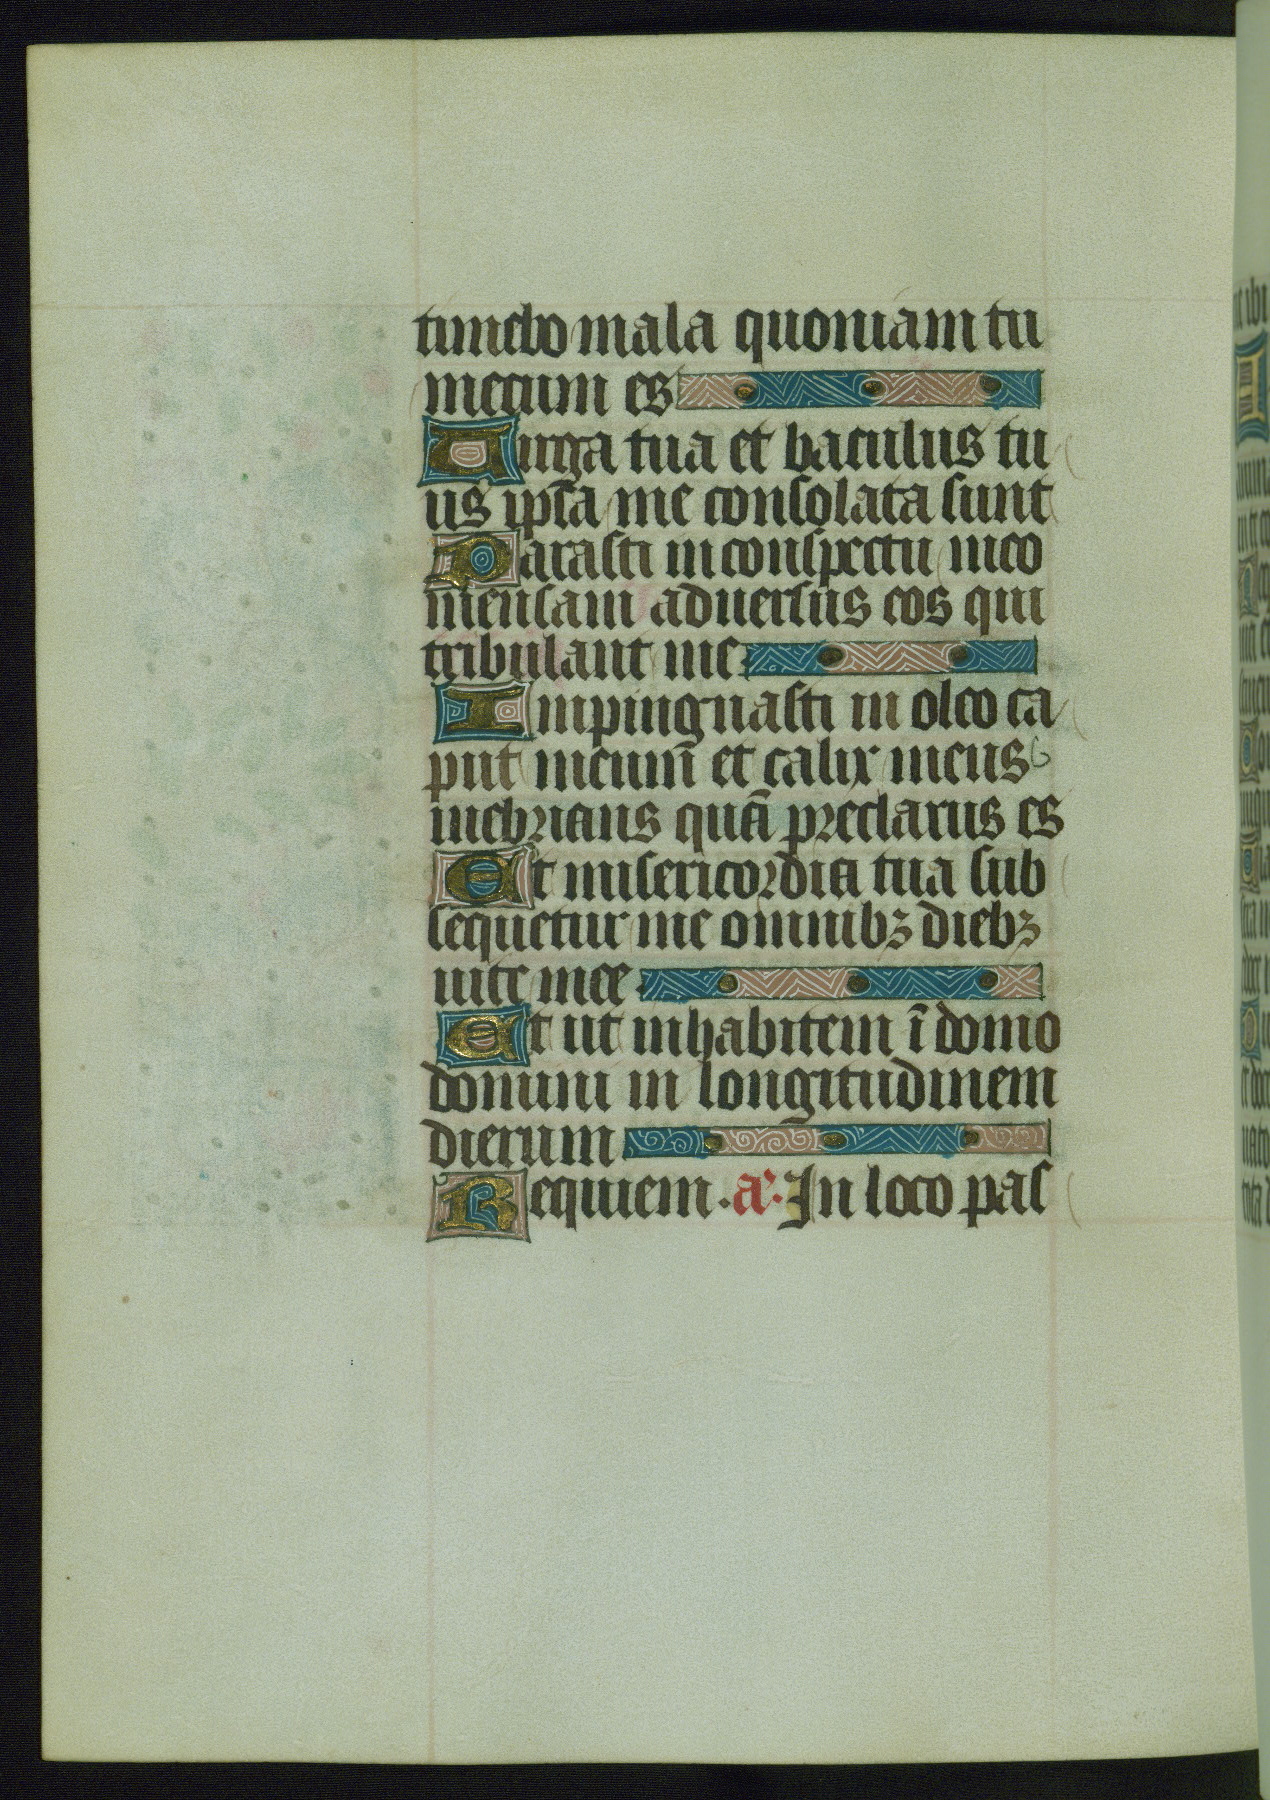 timebo mala quoniam tu
mecum es
Uirga tua et baculus tu
us ipsa me consolata sunt
Parasti in conspectu meo
mensam aduersus eos qui
tribulant me
Impinguasti in oleo ca
put meum̄ et calix meus
inebrians quā preclarus es
Et misericordia tua sub
sequetur me omnibꝫ diebꝫ
uite mee.
Et ut inhabitem ī domo
domini in longitudinem
dierum
Requiem. aᷣ. In loco pas